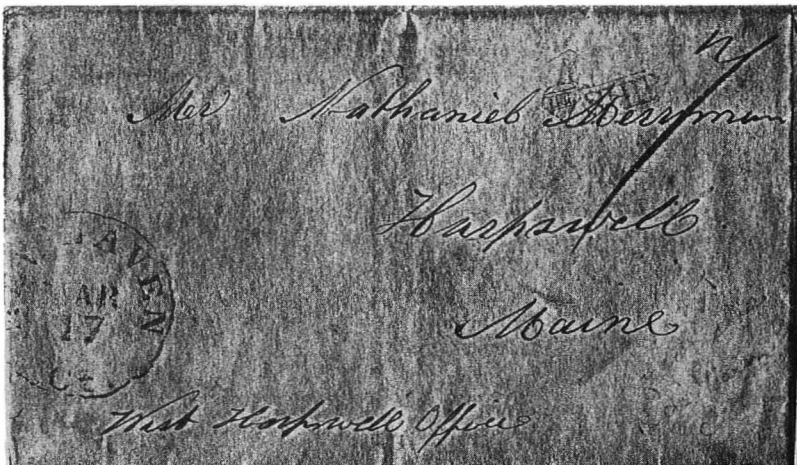 Mr Nathaniel Merryman
Harpswell
Maine
AVEN
AR
17
West Harpswell Office